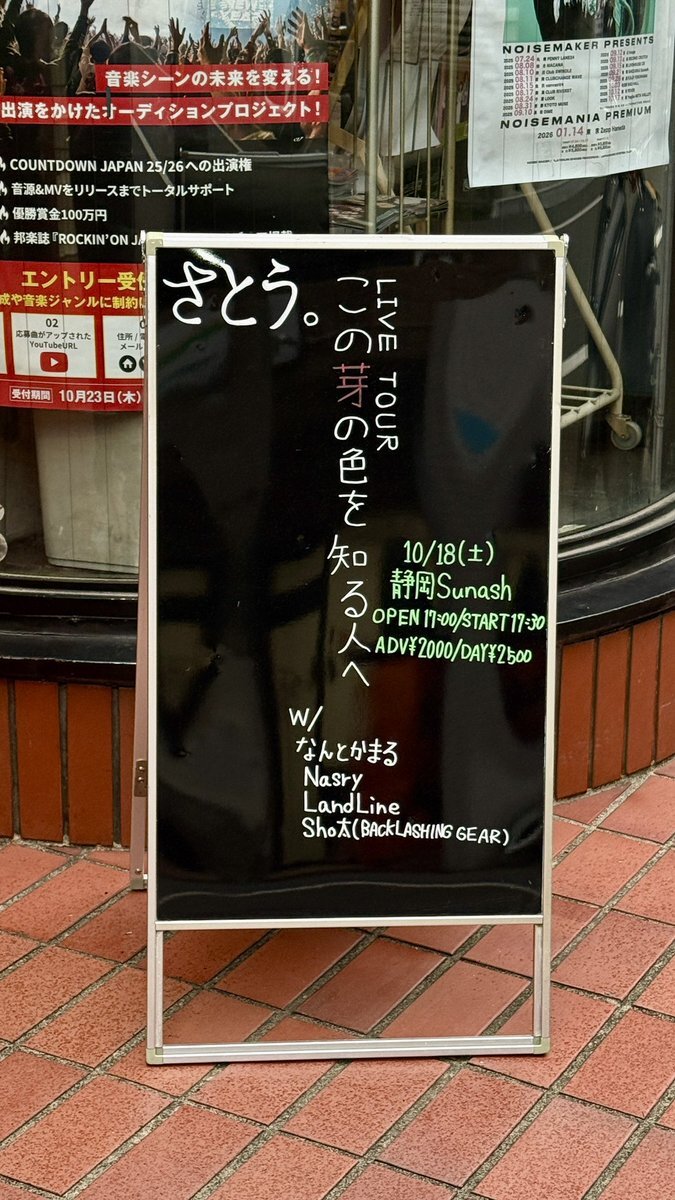 音楽シーンの未来を変える!
出演をかけたオーディションプロジェクト!
COUNTDOWN JAPAN 25/26への出演権
音源&MVをリリースまでトータルサポート
優勝賞金100万円
邦楽誌『ROCKIN'ON JA
エントリー受付
成や音楽ジャンルに制約
02
応募曲がアップされた
YouTubeURL
住所/電
メール
受付期間 10月23日(木)
NOISEMAKER PRESENTS
NOISEMANIA PREMIUM
2026 01.14
さとう。
LIVE TOUR
この芽の色を知る人へ
10/18(土)
静岡Sunash
OPEN 17:00/START 17:30
ADV¥2000/DAY¥2500
w/
なんとかまる
Nasry
LandLine
Sho太(BACKLASHING GEAR)